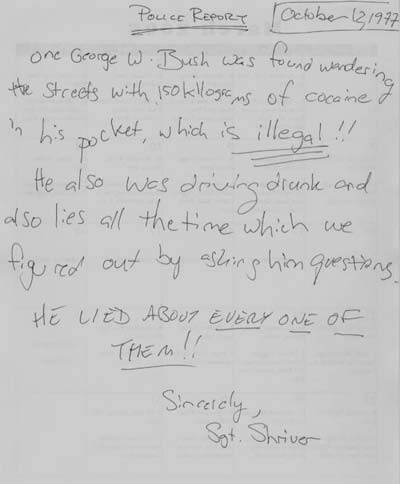 POLICE REPORT
October 12, 1977
one George W. Bush was found wandering
the streets with 150 kilograms of cocaine
in his pocket, which is illegal!!
He also was driving drunk and
also lies all the time which we
figured out by asking him questions.
HE LIED ABOUT EVERY ONE OF
THEM!!
Sincerely,
Sgt. Shriver